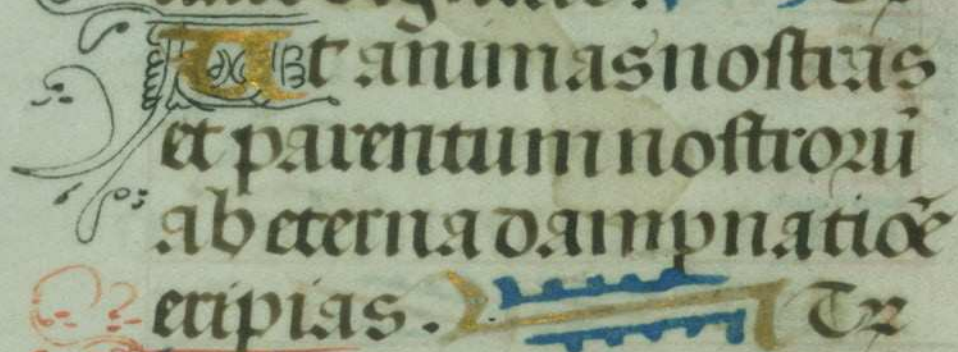 Ut animas nostras
et parentum nostrorū
ab eterna dampnatiōe
eripias. Tr